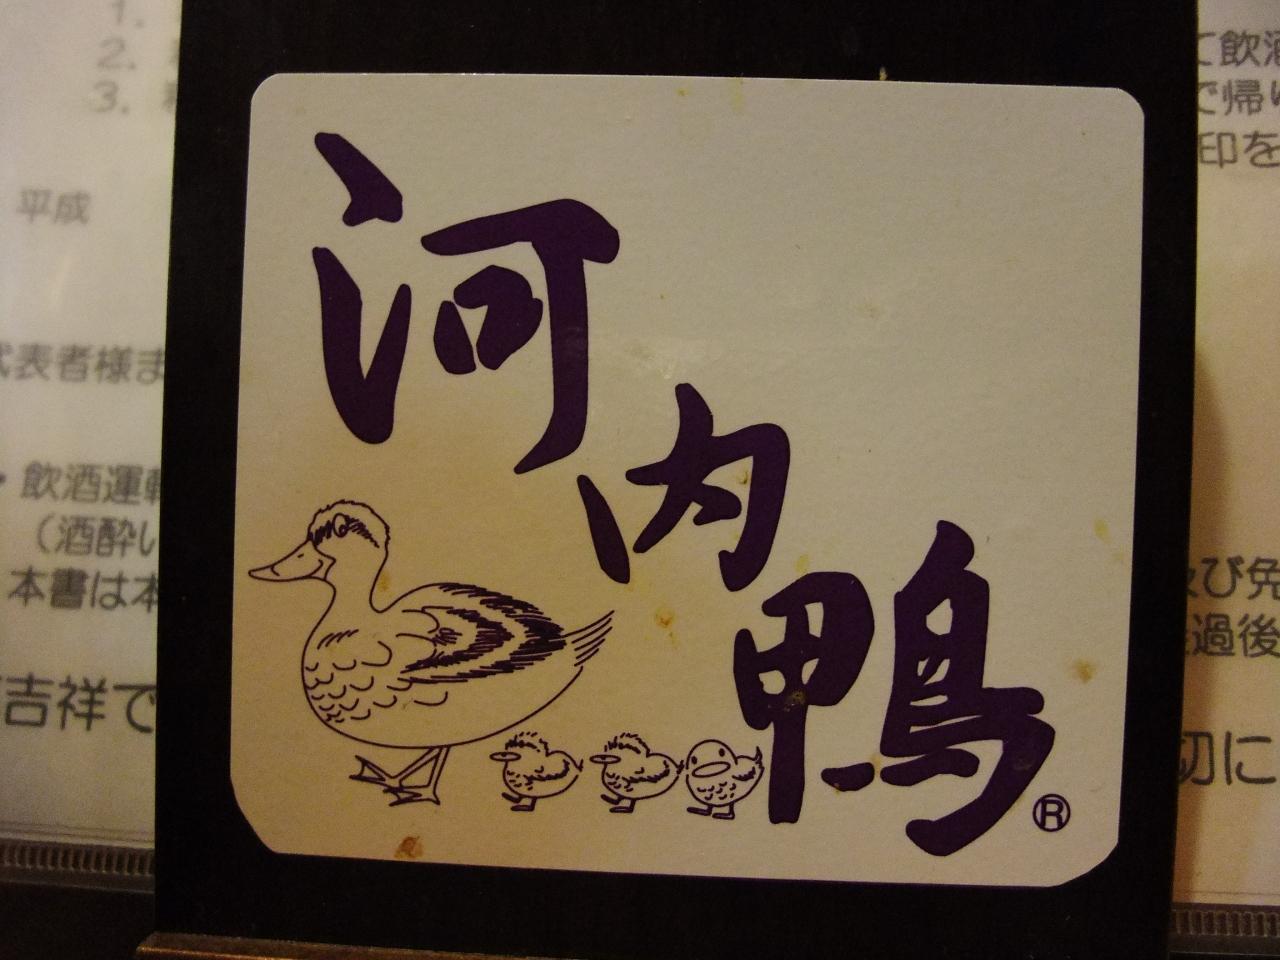 河内鴨
®
1.
2.
3.
平成
代表者様ま
・飲酒運転
(酒酔い
本書は本
吉祥で
て飲酒
で帰り
印を
及び免
過後
切に